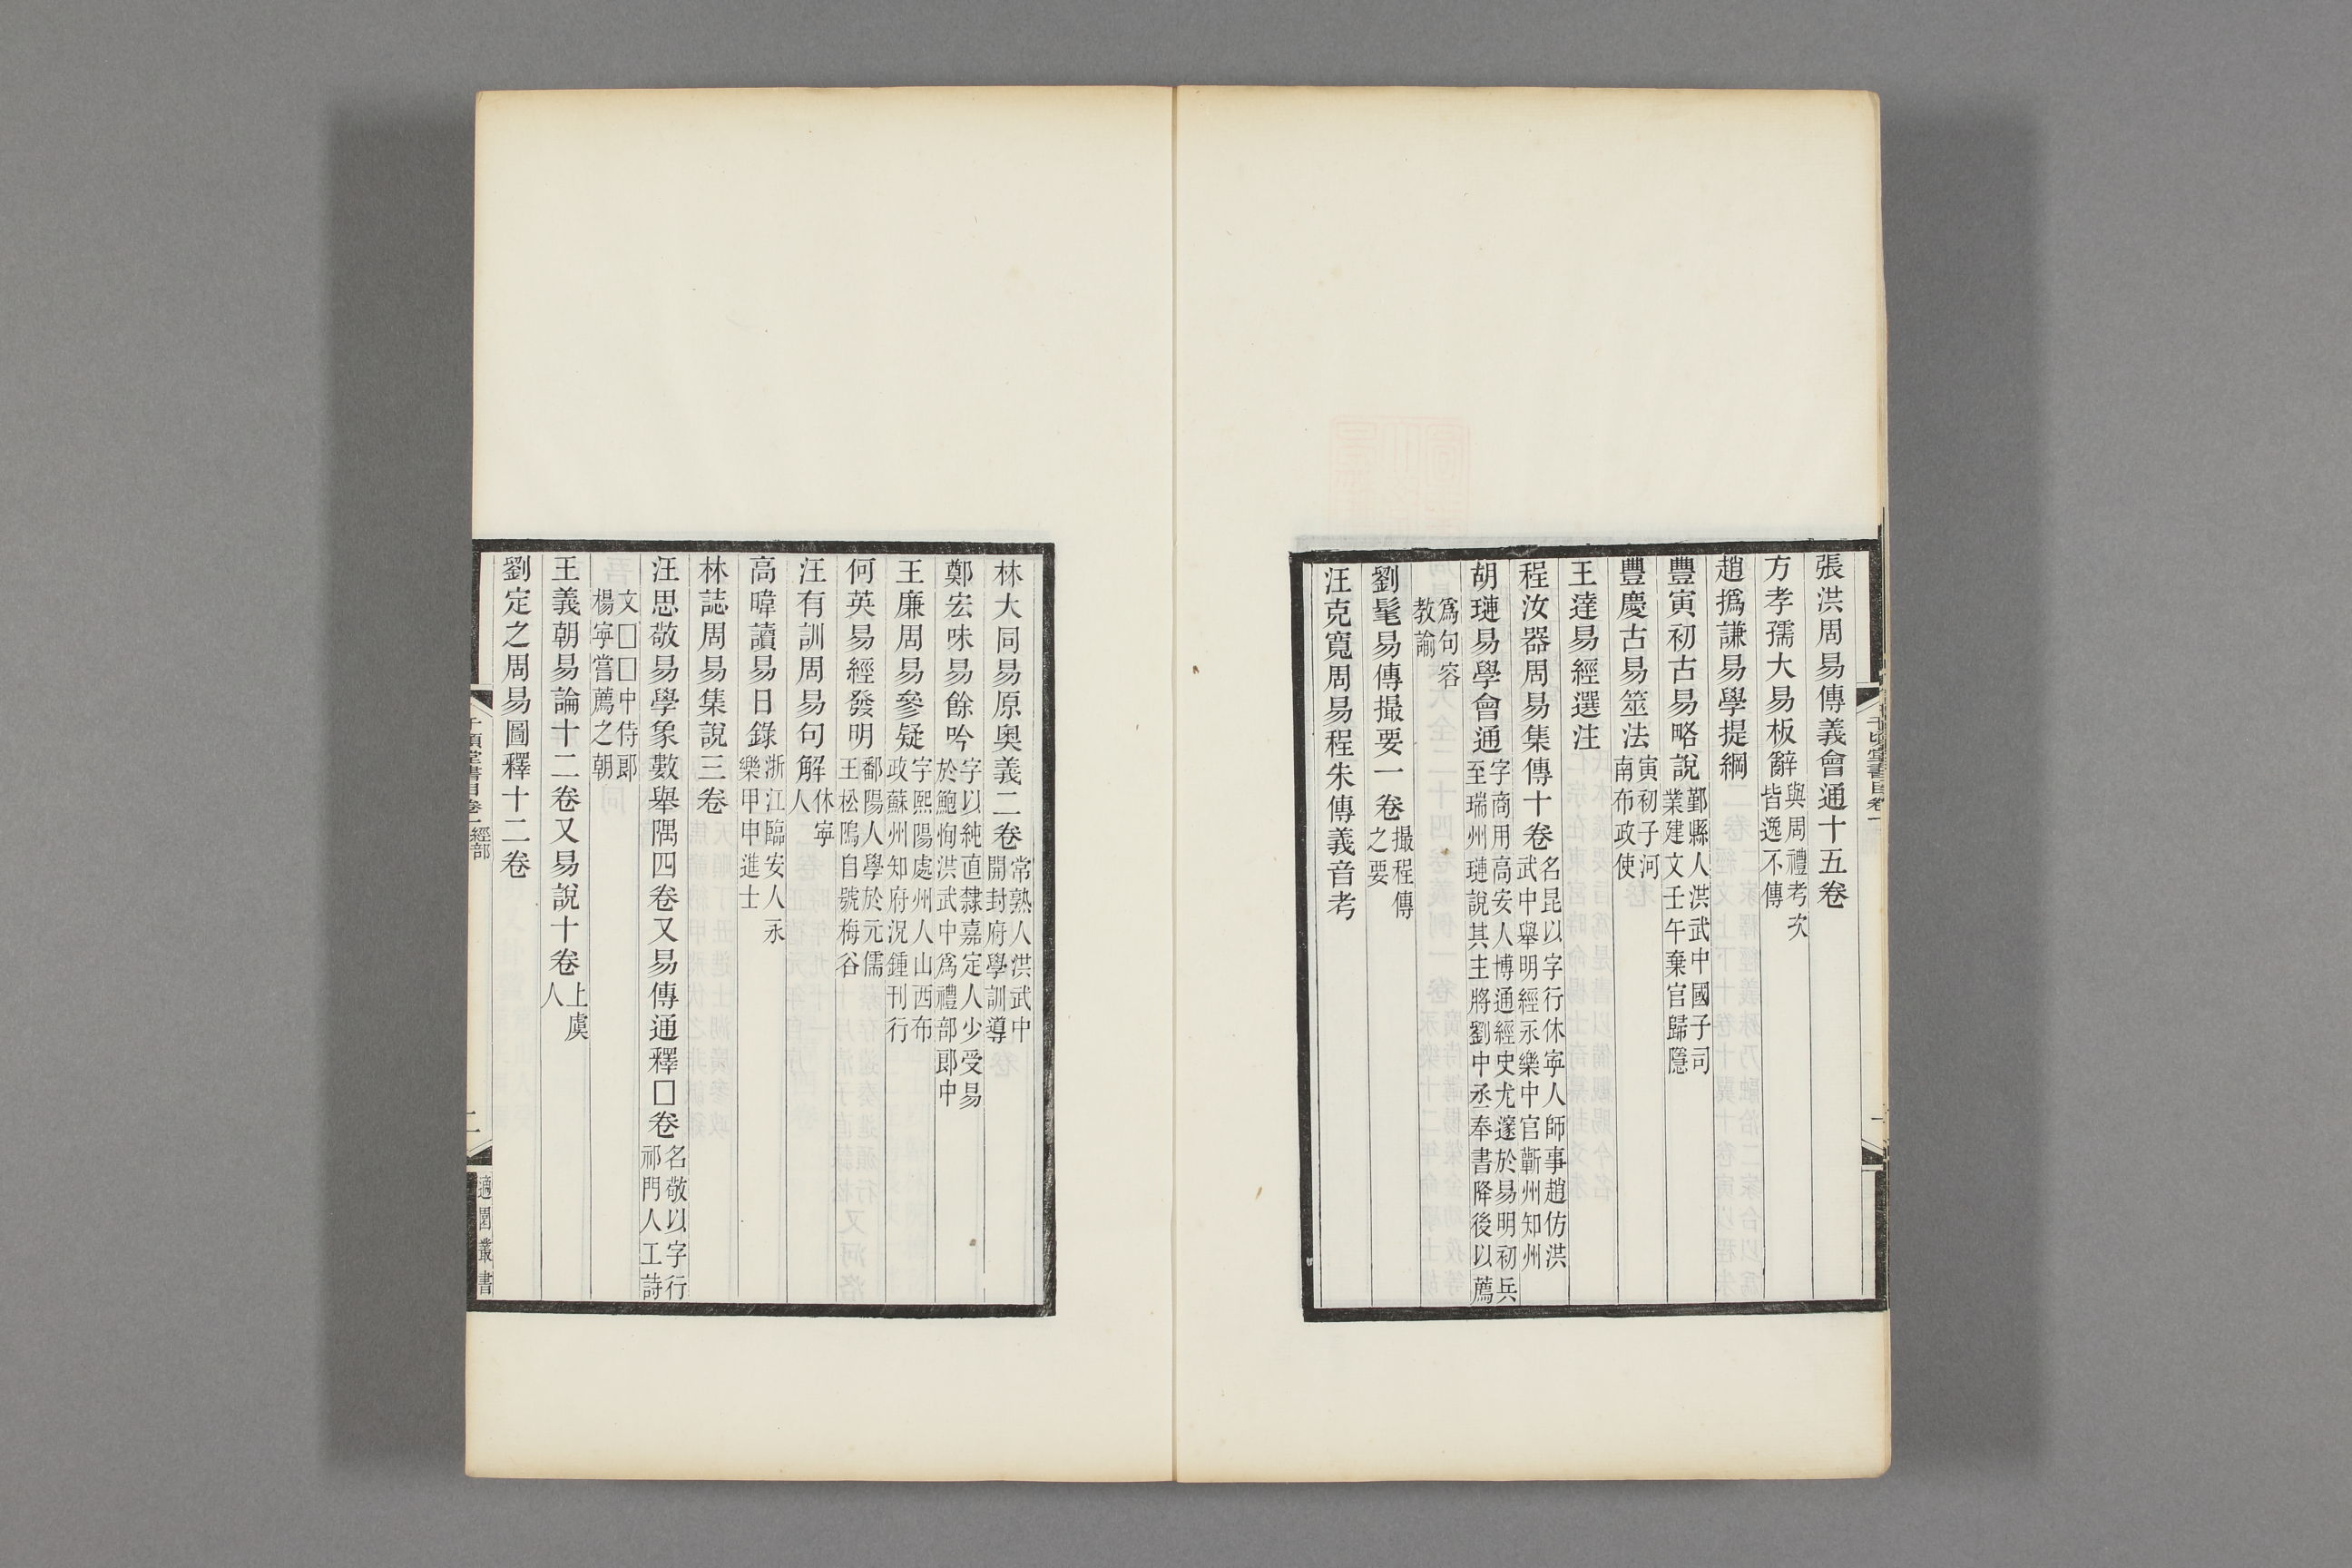 張洪周易傳義會通十五卷
方孝孺大易板辭與周禮考次皆逸不傳
趙撝謙易學提綱
豐寅初古易略說鄞縣人洪武中國子司業建文壬午棄官歸隱
豐慶古易筮法寅初子河南布政使
王達易經選注
程汝器周易集傳十卷名昆以字行休寧人師事趙仿洪武中舉明經永樂中官蘄州知州
胡璉易學會通字商用高安人博通經史尤邃於易明初兵至瑞州璉說其主將劉中丞奉書降後以薦
爲句容教諭
劉髦易傳撮要一卷撮程傳之要
汪克寬周易程朱傳義音考
林大同易原奧義二卷常熟人洪武中開封府學訓導
鄭宏味易餘吟字以純直隸嘉定人少受易於鮑恂洪武中爲禮部郎中
王廉周易參疑字熙陽處州人山西布政蘇州知府況鍾刊行
何英易經發明鄱陽人學於元儒王松隖自號梅谷
汪有訓周易句解休寧人
高暐讀易日錄浙江臨安人永樂甲申進士
林誌周易集說三卷
汪思敬易學象數舉隅四卷又易傳通釋□卷名敬以字行祁門人工詩
文□□中侍郎楊寧嘗薦之朝
王義朝易論十二卷又易說十卷上虞人
劉定之周易圖釋十二卷
千頃堂書目卷一經部
二
適園叢書